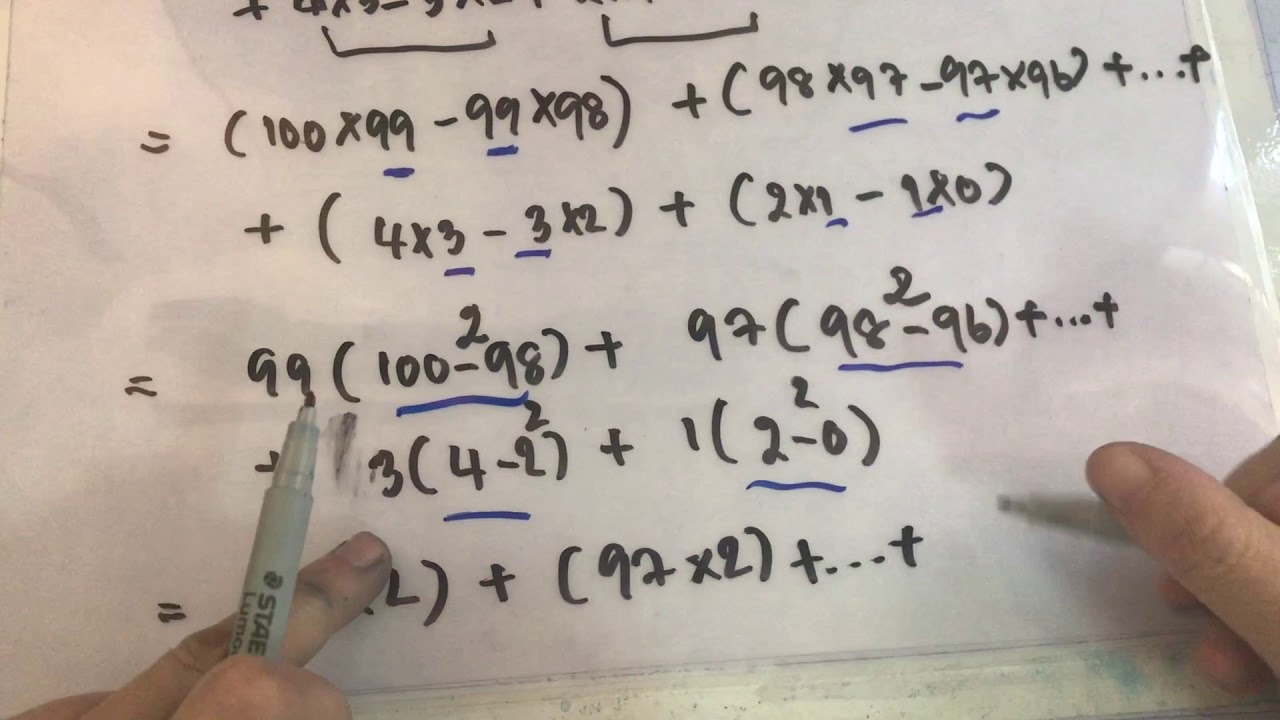 + 4×3-3×2+
= (100×99 - 99×98) + (98×97 - 97×96) + ... +
+ (4×3 - 3×2) + (2×1 - 1×0)
2 2
= 99(100-98) + 97(98-96) + ... +
2 2
+ 3(4-2) + 1(2-0)
= 2) + (97×2) + ... +
STAE
Lumo